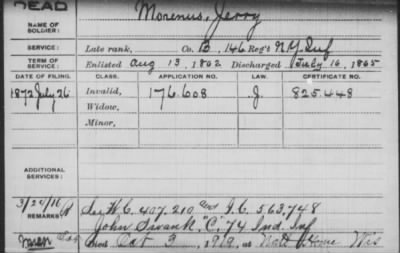 DEAD
NAME OF SOLDIER: Morenus, Jerry
SERVICE: Late rank, Co. B, 146 Reg't N.Y. Inf
TERM OF SERVICE: Enlisted Aug 13, 1862 Discharged July 16, 1865
DATE OF FILING. CLASS. APPLICATION NO. LAW. CERTIFICATE NO.
1872 July 26 Invalid, 176.608 J. 825.448
Widow,
Minor,
ADDITIONAL SERVICES:
3/24/16
REMARKS: See W.C. 407.210 and I.C. 563.748
John Swank, "C," 74 Ind. Inf
Died Oct 3, 1919, at Natl Home Wis